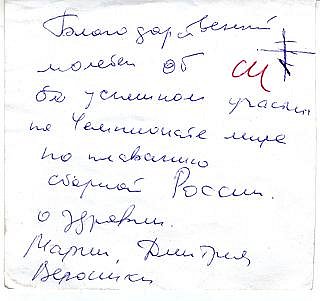 Благодарственный
молебен об
бо успешном участии
на Чемпионате мира
по плаванию
сборной России.
о здравии.
Марии, Дмитрия
Вероники